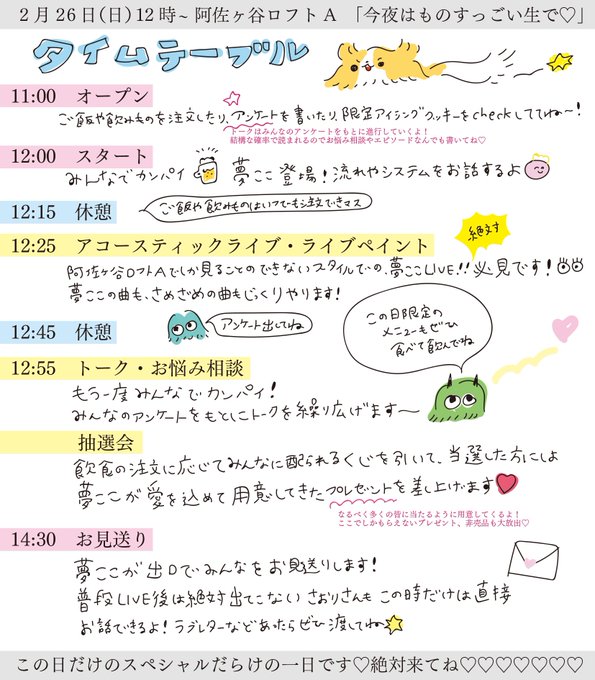 2月26日(日)12時~ 阿佐ヶ谷ロフトA 「今夜はものすっごい生で♡」
タイムテーブル
11:00 オープン
ご飯や飲みものを注文したり、アンケートを書いたり、限定アイシングクッキーをcheckしててね〜!
トークはみんなのアンケートをもとに進行していくよ!
結構な確率で読まれるのでお悩み相談やエピソードなんでも書いてね♡
12:00 スタート
みんなでカンパイ 夢ここ登場!流れやシステムをお話するよ
12:15 休憩
ご飯や飲みものはいつでも注文できマス
12:25 アコースティックライブ・ライブペイント
絶対す
阿佐ヶ谷ロフトAでしか見ることのできないスタイルでの、夢ここLIVE!!必見です!
夢ここの曲も、さめざめの曲もじっくりやります!
12:45 休憩
アンケート出してね
この日限定の
メニューもぜひ
食べて飲んでね
12:55 トーク・お悩み相談
もう一度みんなでカンパイ!
みんなのアンケートをもとにトークを繰り広げます〜
抽選会
飲食の注文に応じてみんなに配られるくじを引いて、当選した方には
夢ここが愛を込めて用意してきたプレゼントを差し上げます♥
なるべく多くの皆に当たるように用意してくるよ!
ここでしかもらえないプレゼント、非売品も大放出♡
14:30 お見送り
夢ここが出口でみんなをお見送りします!
普段LIVE後は絶対出てこないさおりさんもこの時だけは直接
お話できるよ!ラブレターなどあったらぜひ渡してね
この日だけのスペシャルだらけの一日です♡絶対来てね♡♡♡♡♡♡♡